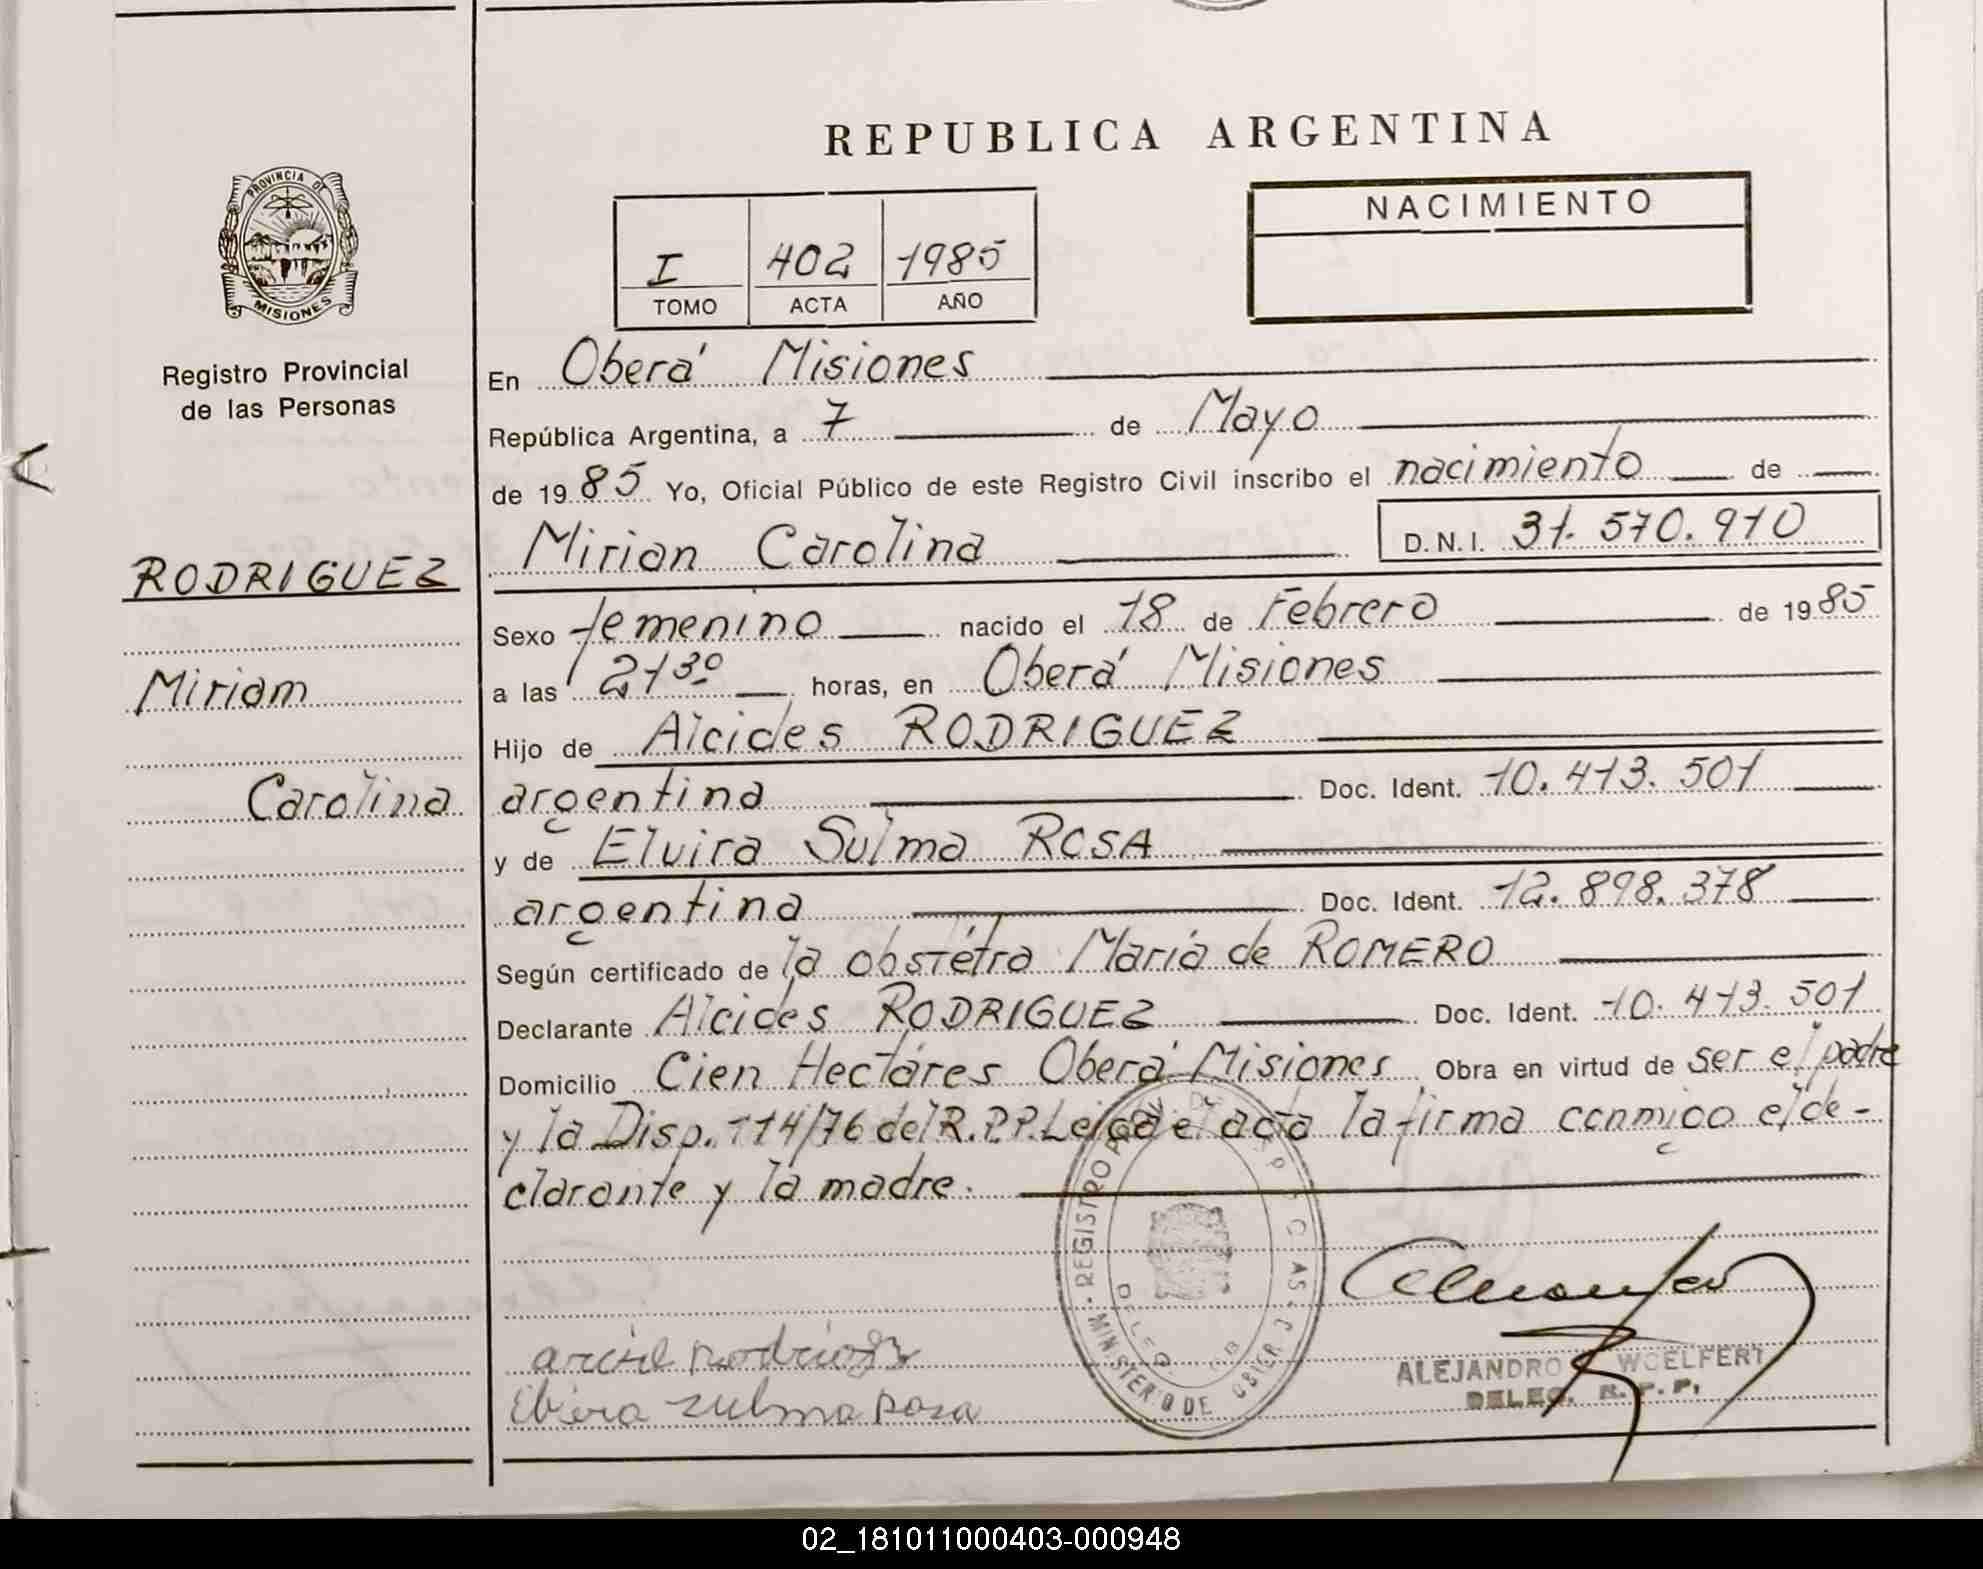 REPUBLICA ARGENTINA
PROVINCIA DE
MISIONES
Registro Provincial
de las Personas
NACIMIENTO
I 402 1985
TOMO ACTA AÑO
En Oberá Misiones
República Argentina, a 7 de Mayo
de 1985 Yo, Oficial Público de este Registro Civil inscribo el nacimiento de
Mirian Carolina D.N.I. 31.570.910
RODRIGUEZ
Sexo femenino nacido el 18 de Febrero de 1985
Miriam
a las 21 30 horas, en Oberá Misiones
Hijo de Alcides RODRIGUEZ
Carolina
argentina Doc. Ident. 10.413.501
y de Elvira Sulma ROSA
argentina Doc. Ident. 12.898.378
Según certificado de la obstétra María de ROMERO
Declarante Alcides RODRIGUEZ Doc. Ident. 10.413.501
Domicilio Cien Hectáres Oberá Misiones Obra en virtud de ser el padre
y la Disp. 114/76 del R.P.P. Leída el acta la firma conmigo el de-
clarante y la madre.
REGISTRO
MINISTERIO DE
DELEG.
Rodriguez
sulma Rosa
ALEJANDRO WOELFERT
DELEG. R. P. P.
02_181011000403-000948